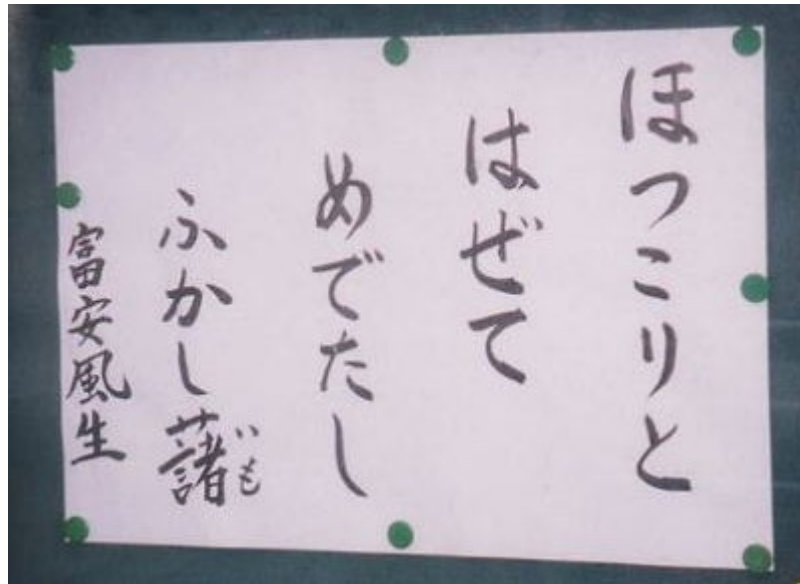 ほつこりと
はぜて
めでたし
ふかし藷
いも
富安風生